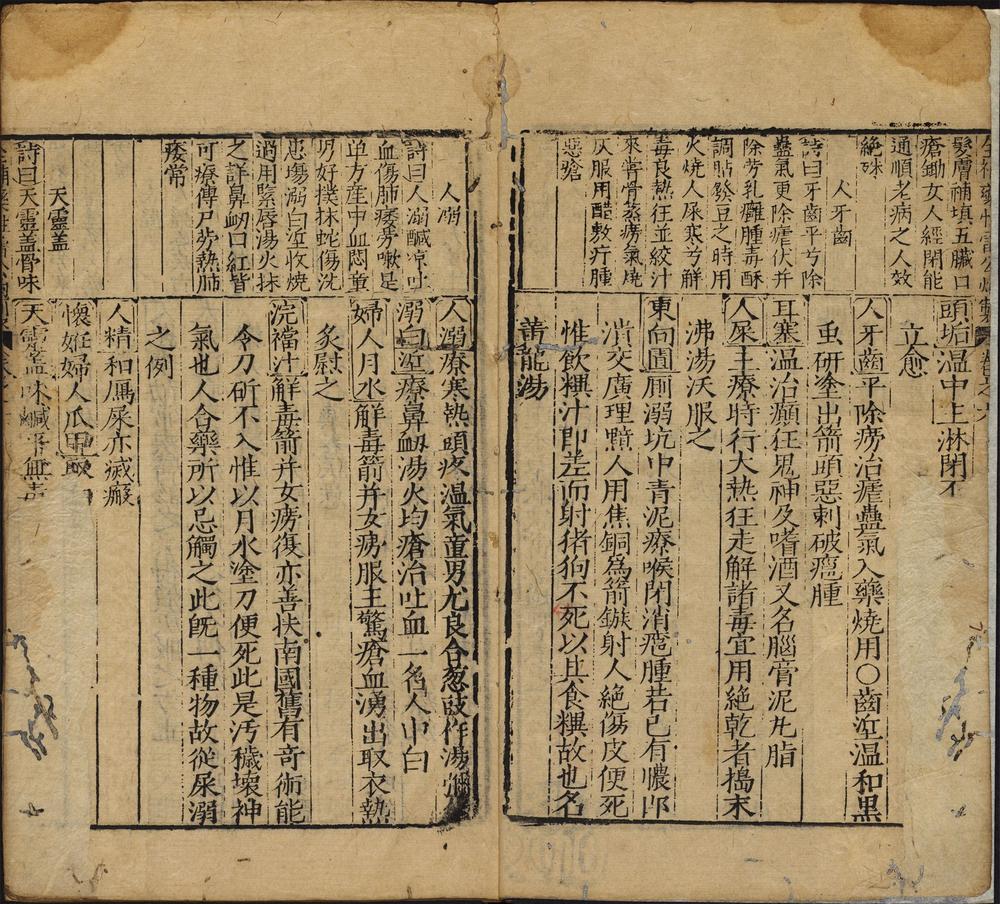 髮膚補填五臟口
瘡鋤女人經閉能
通順老病之人效
絶殊
人牙齒
詩曰牙齒平兮除
蠱氣更除瘧伏并
除芳乳癰腫毒酥
調貼發豆之時用
火燒人屎寒兮解
毒良熱狂並絞汁
來嘗骨蒸癆氣燒
灰服用醋敷疔腫
惡瘡
頭垢溫中主淋閉不
立愈
人牙齒平除癆治瘧蠱氣入藥燒用〇齒垽溫和黒
虱研塗出箭頭惡刺破癰腫
耳塞溫治癲狂鬼神及嗜酒又名腦膏泥丸脂
人屎主療時行大熱狂走解諸毒宜用絶乾者搗末
沸湯沃服之
東向圊厠溺坑中青泥療喉閉消癰腫若已有膿即
潰交廣理黯人用焦銅爲箭鏃射人絶傷皮便死
惟飲糞汁即差而射猪狗不死以其食糞故也名
黃龍湯
人溺
詩曰人溺鹹凉吐
血傷肺痿勞嗽是
單方産中血悶童
男好撲抹蛇傷洗
患瘍溺白垽收燒
過用緊唇湯火抹
之詳鼻衂口紅皆
可療傳尸勞熱肺
痿常
天靈蓋
詩曰天靈蓋骨味
人溺療寒熱頭疼溫氣童男尤良合葱豉作湯彌
溺白垽療鼻衂湯火均瘡治吐血一名人中白
婦人月水解毒箭并女癆服主驚瘡血湧出取衣熱
炙慰之
浣襠汁解毒箭并女癆復亦善扶南國舊有奇術能
令刀斫不入惟以月水塗刀便死此是汚穢壞神
氣也人合藥所以忌觸之此旣一種物故從屎溺
之例
人精和鷹屎亦滅癜
懷姙婦人爪甲
天靈蓋味鹹平無毒